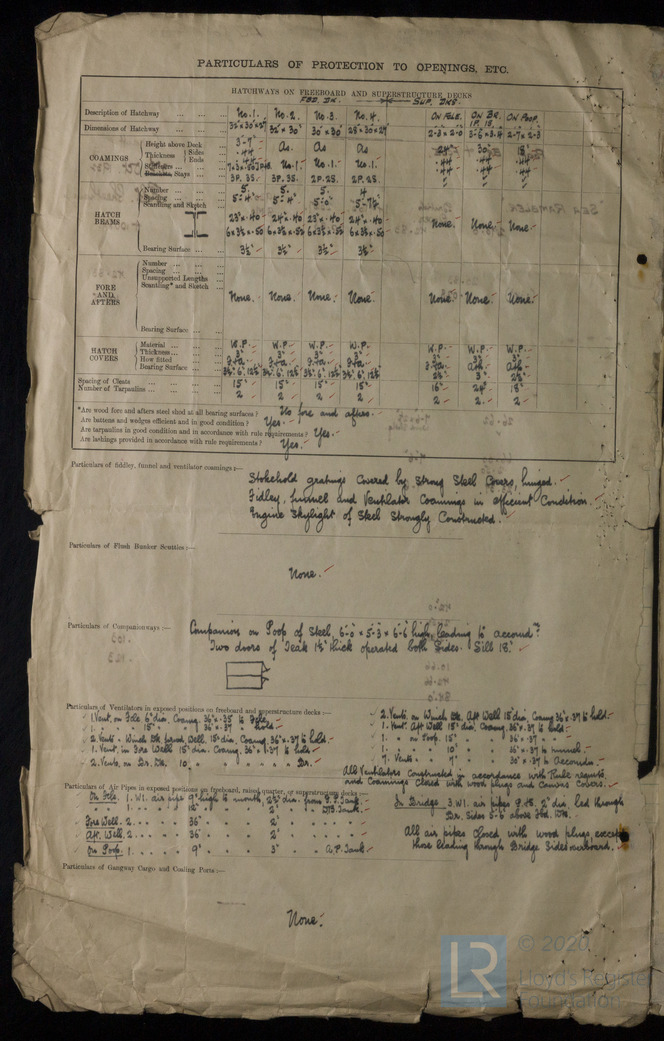 PARTICULARS OF PROTECTION TO OPENINGS, ETC.
HATCHWAYS ON FREEBOARD AND SUPERSTRUCTURE DECKS
FBD. DK. SUP. DKS.
Description of Hatchway No. 1. No. 2. No. 3. No. 4. ON FCLE. ON BR. ON POOP.
Dimensions of Hatchway 32'×30' 30'×30' 2-3×2-0 3-6×3-4 2-7×2-3
COAMINGS
Height above Deck 3-7" As. As As 24" 30" 18"
Thickness Sides .44 .44 .44 .44
Ends .44 .44 .44 .44
Stays 3P. 3S. 3P. 3S. 2P. 2S. 2P. 2S.
HATCH BEAMS
Number 5. 5. 5. 4
Spacing 5-4" 5-4" 5-0"
Scantling and Sketch 23"×.40 24"×.40 23"×.40 24"×.40 None. None. None.
6×3½×.50 6×3½×.52 6×3½×.50
Bearing Surface 3½" 3½" 3½" 3½"
FORE AND AFTERS
Number
Spacing
Unsupported Lengths
Scantling* and Sketch
None. None. None. None. None. None. None.
Bearing Surface
HATCH COVERS
Material W.P. W.P. W.P. W.P. W.P. W.P. W.P.
Thickness 3" 3" 3" 3" 3" 3" 3"
How fitted F+a F+a F+a F+a F+a Ath. Ath.
Bearing Surface 2½" 3" 2½"
Spacing of Cleats 15" 15" 15" 15" 16" 24" 18"
Number of Tarpaulins 2 2 2 2 2. 2. 2
*Are wood fore and afters steel shod at all bearing surfaces? No fore and afters.
Are battens and wedges efficient and in good condition? Yes.
Are tarpaulins in good condition and in accordance with rule requirements? Yes.
Are lashings provided in accordance with rule requirements? Yes.
Particulars of fiddley, funnel and ventilator coamings:—
Stokehold gratings covered by strong steel covers, hinged.
Fidley, funnel and Ventilator Coamings in efficient Condition.
Engine Skylight of Steel Strongly Constructed.
Particulars of Flush Bunker Scuttles:—
None.
Particulars of Companionways:—
Companion on Poop of Steel, 6-0 × 5-3 × 6-6 high, leading to accomd?
Two doors of Teak 1½" thick operated both sides. Sill 18"
Particulars of Ventilators in exposed positions on freeboard and superstructure decks:—
1. Vent. on Fcle 6" dia. Coaing. 36"×.35 to Fcle.
1. 15" 36"×.37 hold.
2. Vents. Winch Dk. forwd Well. 15" dia. Coaing. 36"×.37 to hold
1. Vent. in Fore Well 15" dia. Coaming. 36"×.37 to hold
2. Vents. on Br. Dk. 10" Br.
2. Vents. on Winch Dk. Aft Well 15" dia. Coaing 36"×.37 to hold.
1. Vent. Aft Well 15" dia. Coaing 36"×.37 to hold
1. on Poop. 15" 36"×.37
1. 10" 36"×.37 to tunnel.
7. Vents. 7" 30"×.37 to Accomdn.
All Ventilators Constructed in accordance with Rule requmts.
and Coamings Closed with wood plugs and Canvas Covers.
Particulars of Air Pipes in exposed positions on freeboard, raised quarter, or superstructure decks:—
On Fcle. 1. W.I. air pipe 9" high to mouth, 2½" dia. from F.P. Tank.
D.B. Tank.
Fore Well. 2. 36" 2"
Aft. Well. 2. 36" 2"
On Poop. 1. 9" 3" A.P. Tank
In Bridge. 3. W.I. air pipes 2" dia. led through
Br. Sides 5-6 above Fbd. Dk.
All air pipes Closed with wood plugs except
those leading through Bridge Sides overboard.
Particulars of Gangway Cargo and Coaling Ports:—
None.
LR
© 2020
Lloyd's Register
Foundation